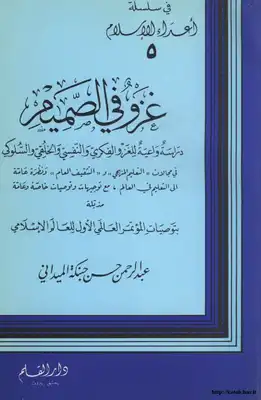 في سلسلة
أعداء الإسلام
٥
غزو في الصميم
دراسة واعية للغزو الفكري والنفسي والخلقي والسلوكي
في مجالات « التعليم المنهجي » و « التثقيف العام » ونظرة عامة
الى التعليم في العالم ، مع توجيهات وتوصيات خاصة وعامة
مذيلة
بتوصيات المؤتمر العالمي الأول للعالم الإسلامي
عبد الرحمن حسن حبنكة الميداني
دار القلم